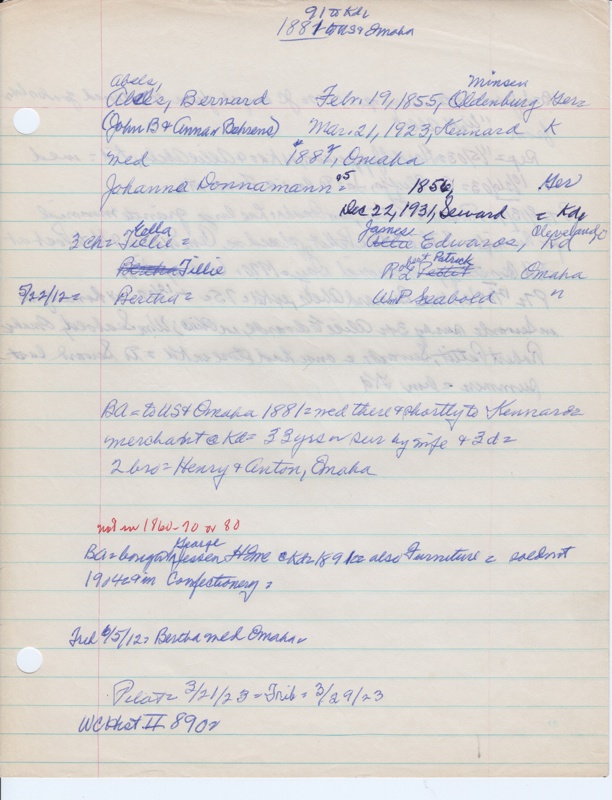 91 to Kd
1881 to US & Omaha
Abels,
Abels, Bernard Feb. 19, 1855, Oldenburg Ger
Minsen
(John B & Anna Behrens) Mar. 21, 1923, Kennard K
med 1887, Omaha
Johanna Donnamann = 1856, Ger
Dec 22, 1931, Seward = Kd
3 ch = Tillie = Edwards, Kd
Cleveland, O
James
Bertha Tillie R Pettit Omaha
Patrick
5/22/12 = Bertha = Wm P Seabold "
BA = to US & Omaha 1881 = med there & shortly to Kennard =
merchant @ Kd = 33 yrs = sur by wife & 3 d =
2 bro = Henry & Anton, Omaha
not in 1860-70 or 80
George
BA = bought Jessen Home @ Kd = 1891 = also Furniture = sold out
1904 = 9 in Confectionery =
6/5/12 = Bertha med Omaha
Pilot = 3/21/23 = Trib = 3/29/23
WC Hist II 890